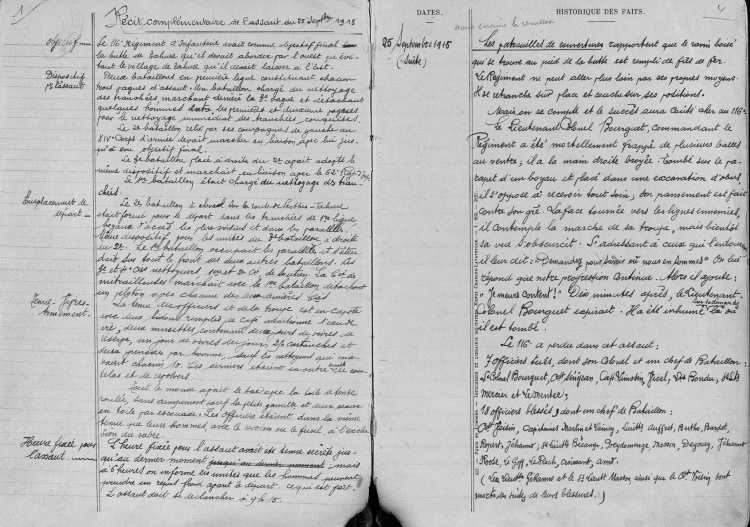 1)
Récit complémentaire de l'assaut du 25 Septbre 1915
Objectif
Le 116e Régiment d'Infanterie avait comme objectif final
la butte de Tahure qu'il devait aborder par l'ouest en évi-
tant le village de Tahure qu'il devait laisser à l'est.
Dispositif
pr l'assaut
Deux bataillons en première ligne constituant chacun
trois vagues d'assaut. Un bataillon chargé du nettoyage
des tranchées marchant derrière la 3e vague et détachant
quelques hommes entre les première et deuxième vagues
pour le nettoyage immédiat des tranchées conquises.
Le 2e bataillon relié par ses compagnies de gauche au
XIVe Corps d'armée devait marcher en liaison avec lui jus-
qu'à son objectif final.
Le 3e bataillon placé à droite du 2e ayant adopté le
même dispositif et marchant en liaison avec le 62e Régt d'Infie
Le 1er bataillon était chargé du nettoyage des tran-
chées.
Emplacement de
départ
Le 2e bataillon à cheval sur la route de Perthes-Tahure
était formé pour le départ dans les tranchées de 1re ligne,
boyaux d'accès les plus voisins et dans les parallèles.
Même dispositif pour les unités du 3e bataillon à droite
du 2e. Le 1er bataillon occupait les parallèles et s'éten-
dait sur tout le front des deux autres bataillons. Les
3e et 4e Cies nettoyeurs, 1re et 2e Cie de soutien. La Cie de
mitrailleuses marchait avec le 1er bataillon détachant
un peloton avec chacune des deux premières Cies
Tenue - Vivres
Armement
La tenue des officiers et de la troupe est en capote
avec deux bidons remplis de café additionné d'eau de
vie, deux musettes contenant deux jours de vivres de
réserve, un jour de vivres du jour, 250 cartouches et
deux grenades par homme, sauf les nettoyeurs qui en
avaient chacun 10. Ces derniers étaient en outre armés de cou-
telas et de revolvers.
Tout le monde avait le sac avec la toile de tente
roulée, sans campement sauf la petite gamelle et deux seaux
en toile par escouade. Les officiers étaient dans la même
tenue que leurs hommes, avec le mousqueton ou le fusil à l'exclu-
sion du sabre.
Heure fixée pour
l'assaut
L'heure fixée pour l'assaut avait été tenue secrète jus-
qu'au dernier moment jusqu'au dernier moment, mais
à 6 heures on informe les unités que les hommes peuvent
prendre un repas froid avant le départ. Ce qui est fait.
L'assaut doit se déclancher à 9h15.
DATES.
HISTORIQUE DES FAITS.
4
25 Septembre 1915
(Suite)
Les patrouilles de couvertures rapportent que le ravin boisé
qui se trouve au pied de la butte est rempli de fils de fer.
Le Régiment ne peut aller plus loin par ses propres moyens.
Il se retranche sur place et couche sur ses positions.
Mais on se compte et le succès aura coûté cher au 116e.
Le Lieutenant Colonel Bourguet, commandant le
Régiment a été mortellement frappé de plusieurs balles
au ventre ; il a la main droite broyée. Tombé sur le pa-
rapet d'un boyau et placé dans une excavation d'obus,
il s'oppose à recevoir tout soin, son pansement est fait
contre son gré. La face tournée vers les lignes ennemies,
il contemple la marche de sa troupe, mais bientôt
sa vue s'obscurcit. S'adressant à ceux qui l'entourent
il leur dit : "Dimanchez, pour savoir où nous en sommes". On lui
répond que notre progression continue. Alors il ajoute :
"Je meurs content !" Dix minutes après, le Lieutenant
Colonel Bourguet expirait. Il a été inhumé là où
il est tombé.
Le 116e a perdu dans cet assaut :
7 officiers tués, dont son Colonel et un chef de Bataillon :
Lt Colonel Bourguet, Ct
18 officiers blessés, dont un chef de Bataillon ;
Ct Voisin, Capitaines Martin et
(Les Lieutts Jéhanno et le St Lieutt Masson ainsi que le Ct Voisin sont
morts des suites de leurs blessures.)